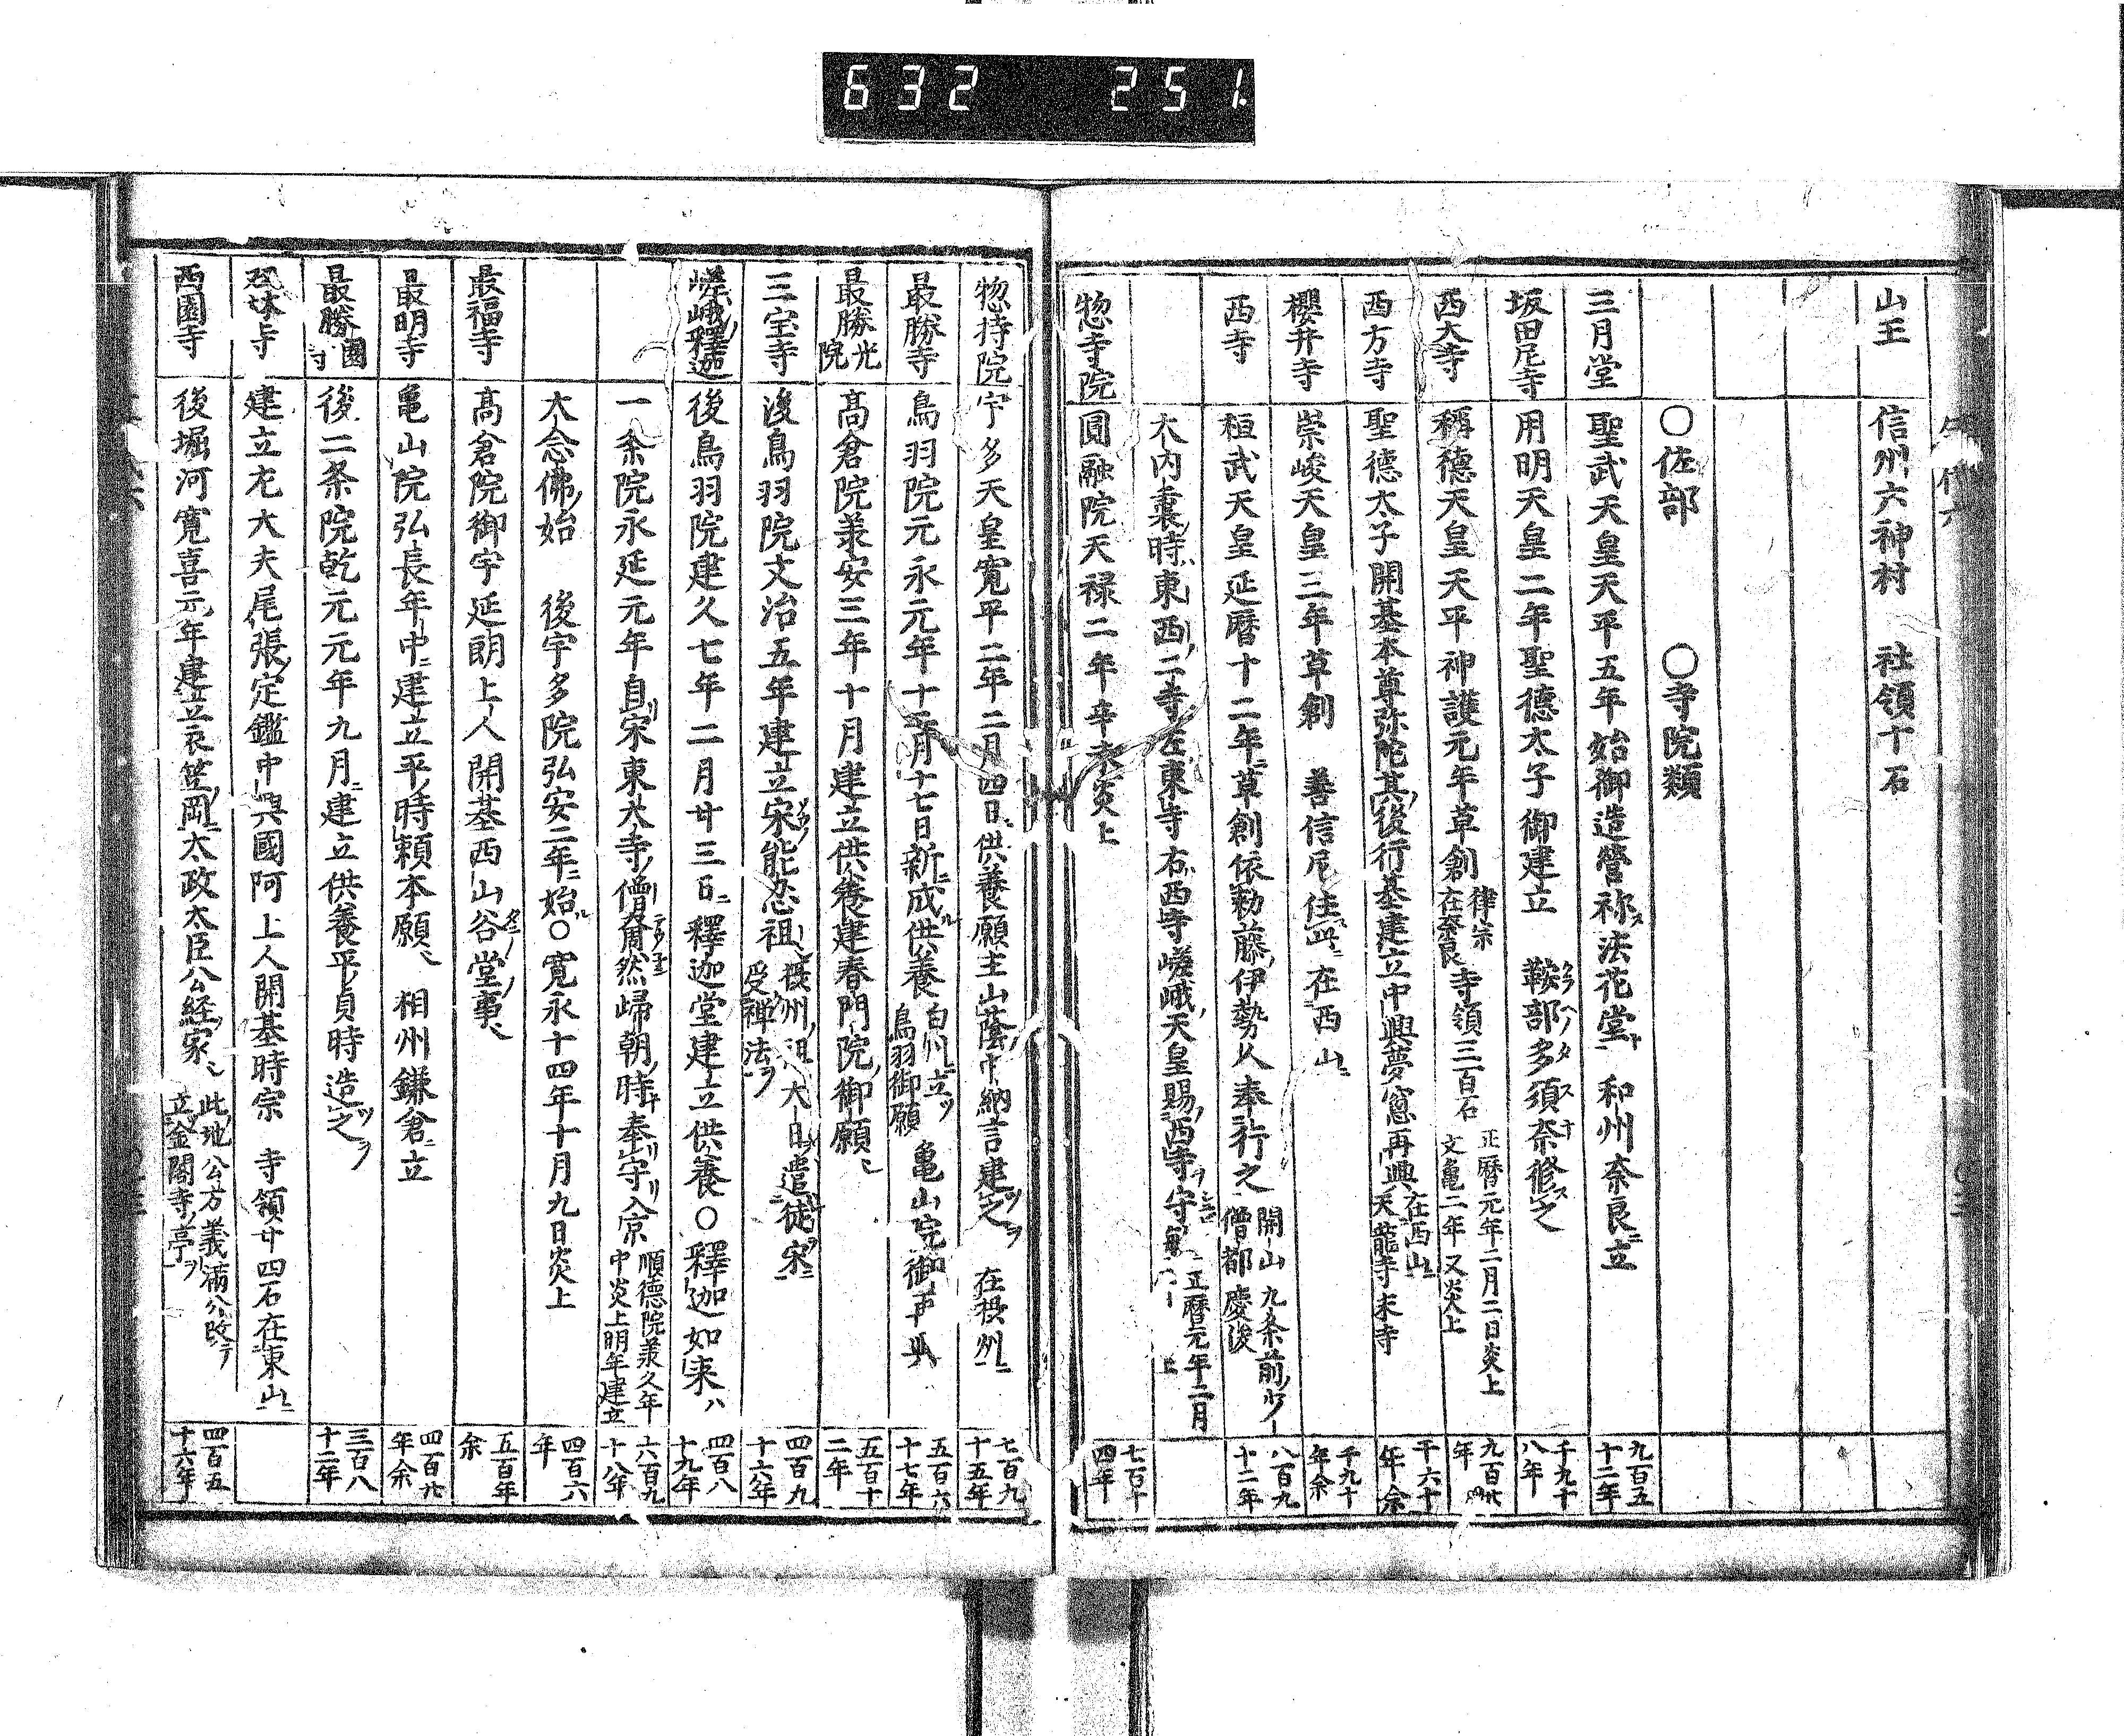 632 251.
山王 信州六神村 社領十石
○佐部 ○寺院類
三月堂 聖武天皇天平五年始御造營称ス法花堂ト 和州奈良ニ立 九百五十二年
坂田尼寺 用明天皇二年聖德太子御建立 鞍部多須奈修ス之 千九十八年
西大寺 稱德天皇天平神護元年草創 律宗在奈良 寺領三百石 正暦元年二月二日炎上 文亀二年又炎上
西方寺 聖德太子開基本尊弥陀其後行基建立中興夢窓再興 在西山ニ 天龍寺末寺 千六十年余
櫻井寺 崇峻天皇三年草創 善信尼住ス此ニ 在西山ニ 千九十年余
西寺 桓武天皇延暦十二年ニ草創依勅藤伊勢人奉行之 開山九条前 僧都慶俊 八百九十二年
大内裏ノ時東西ノ二寺左東寺右西寺嵯峨天皇賜西寺守 正暦元年二月 上
惣寺院 圓融院天禄二年辛未炎上 七百十四年
惣持院 宇多天皇寛平二年二月四日供養願主山蔭中納言建之 在摂州ニ 七百九十五年
最勝寺 鳥羽院元永元年十二月十七日新成供養 白州立 鳥羽御願 亀山院御 五百六十七年
最勝光院 高倉院承安三年十月建立供養建春門院御願 五百十二年
三宝寺 後鳥羽院文治五年建立宋能忍祖 摂州 大日遣徒宋ニ 受禅法ヲ 四百九十六年
嵯峨釋迦 後鳥羽院建久七年二月廿三日ニ釋迦堂建立供養○釋迦如来ハ 四百八十九年
一条院永延元年自宋東大寺僧奝然歸朝ノ時奉守入京 順德院承久年中炎上明年建立 六百九十八年
大念佛ノ始 後宇多院弘安二年ニ始ル○寛永十四年十月九日炎上 四百六年
最福寺 高倉院御宇延朗上人開基西山谷堂ノ事 五百年余
最明寺 亀山院弘長年中ニ建立平時頼本願 相州鎌倉ニ立 四百廿年余
最勝園寺 後二条院乾元元年九月ニ建立供養平貞時造之 三百八十二年
建立左大夫尾張定鑑中興國阿上人開基時宗 寺領廿四石在東山ニ
西園寺 後堀河寛喜元年建立衣笠岡ニ太政大臣公経家 此地公方義満公改テ 立金閣寺ノ亭ヲ 四百五十六年